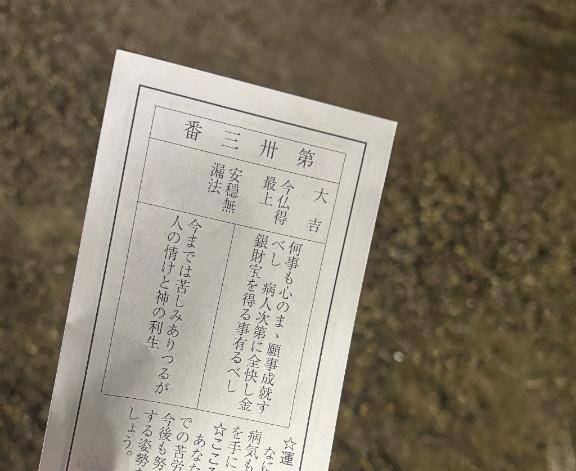 第卅三番
大吉
今仏得
最上
安穏無
漏法
何事も心のまゝ願事成就す
べし　病人次第に全快し金
銀財宝を得る事有るべし
今までは苦しみありつるが
人の情けと神の利生
☆運
なに
病気も
を手に
☆ここ
あなた
での苦労
今後も努
する姿勢
しょう。